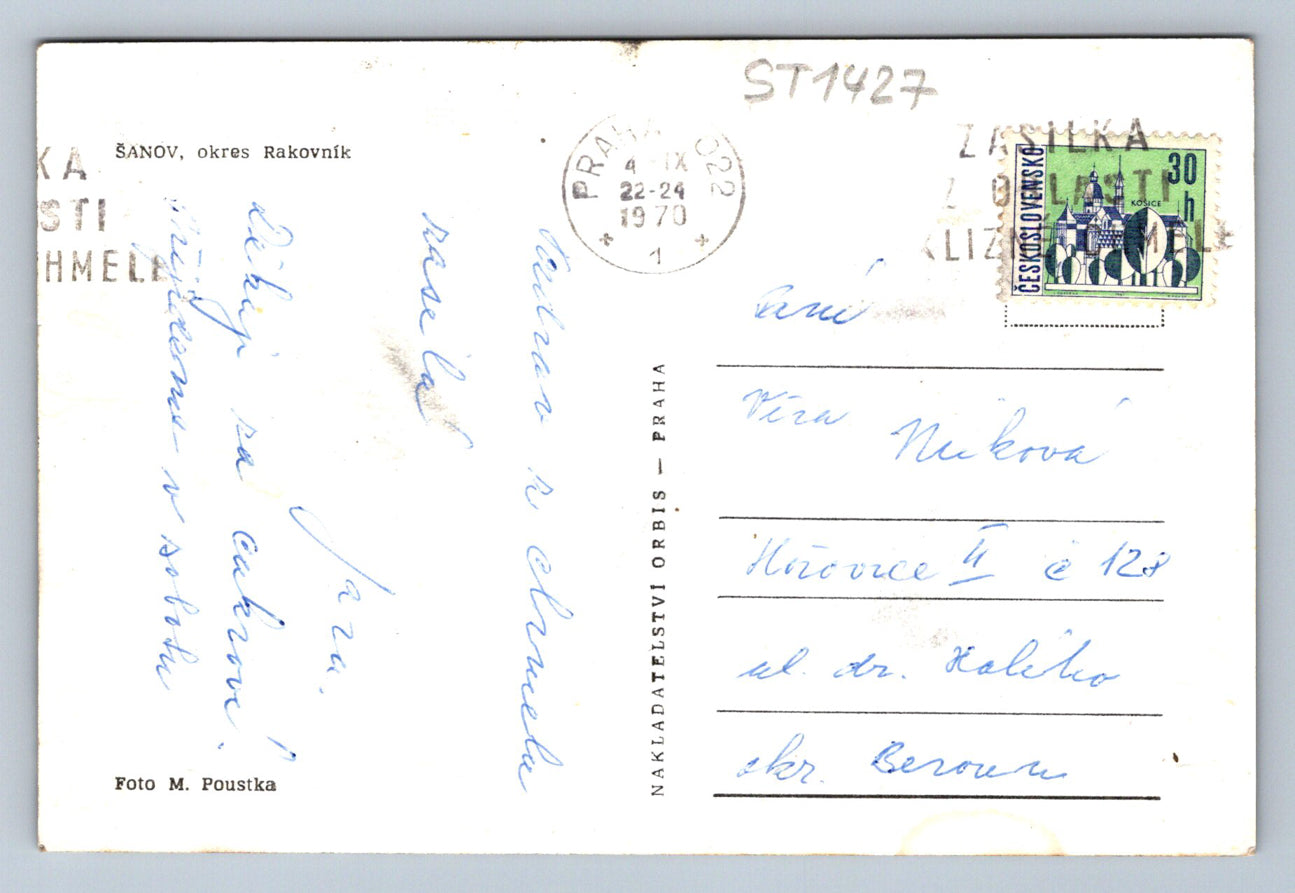 ST1427
ŠANOV, okres Rakovník
PRAHA 522
4 IX
22-24
1970
1
ZÁSILKA
Z OBLASTI
SKLIZNĚ CHMELE
KA
STI
HMELE
ČESKOSLOVENSKO
30
h
KOŠICE
k chmelu
posílá
Jara.
Děkuji za cukroví!
Přijedeme v sobotu
Foto M. Poustka
NAKLADATELSTVÍ ORBIS — PRAHA
Paní
Věra
Hořovice II č 128
ul. dr. Holého
okr. Beroun